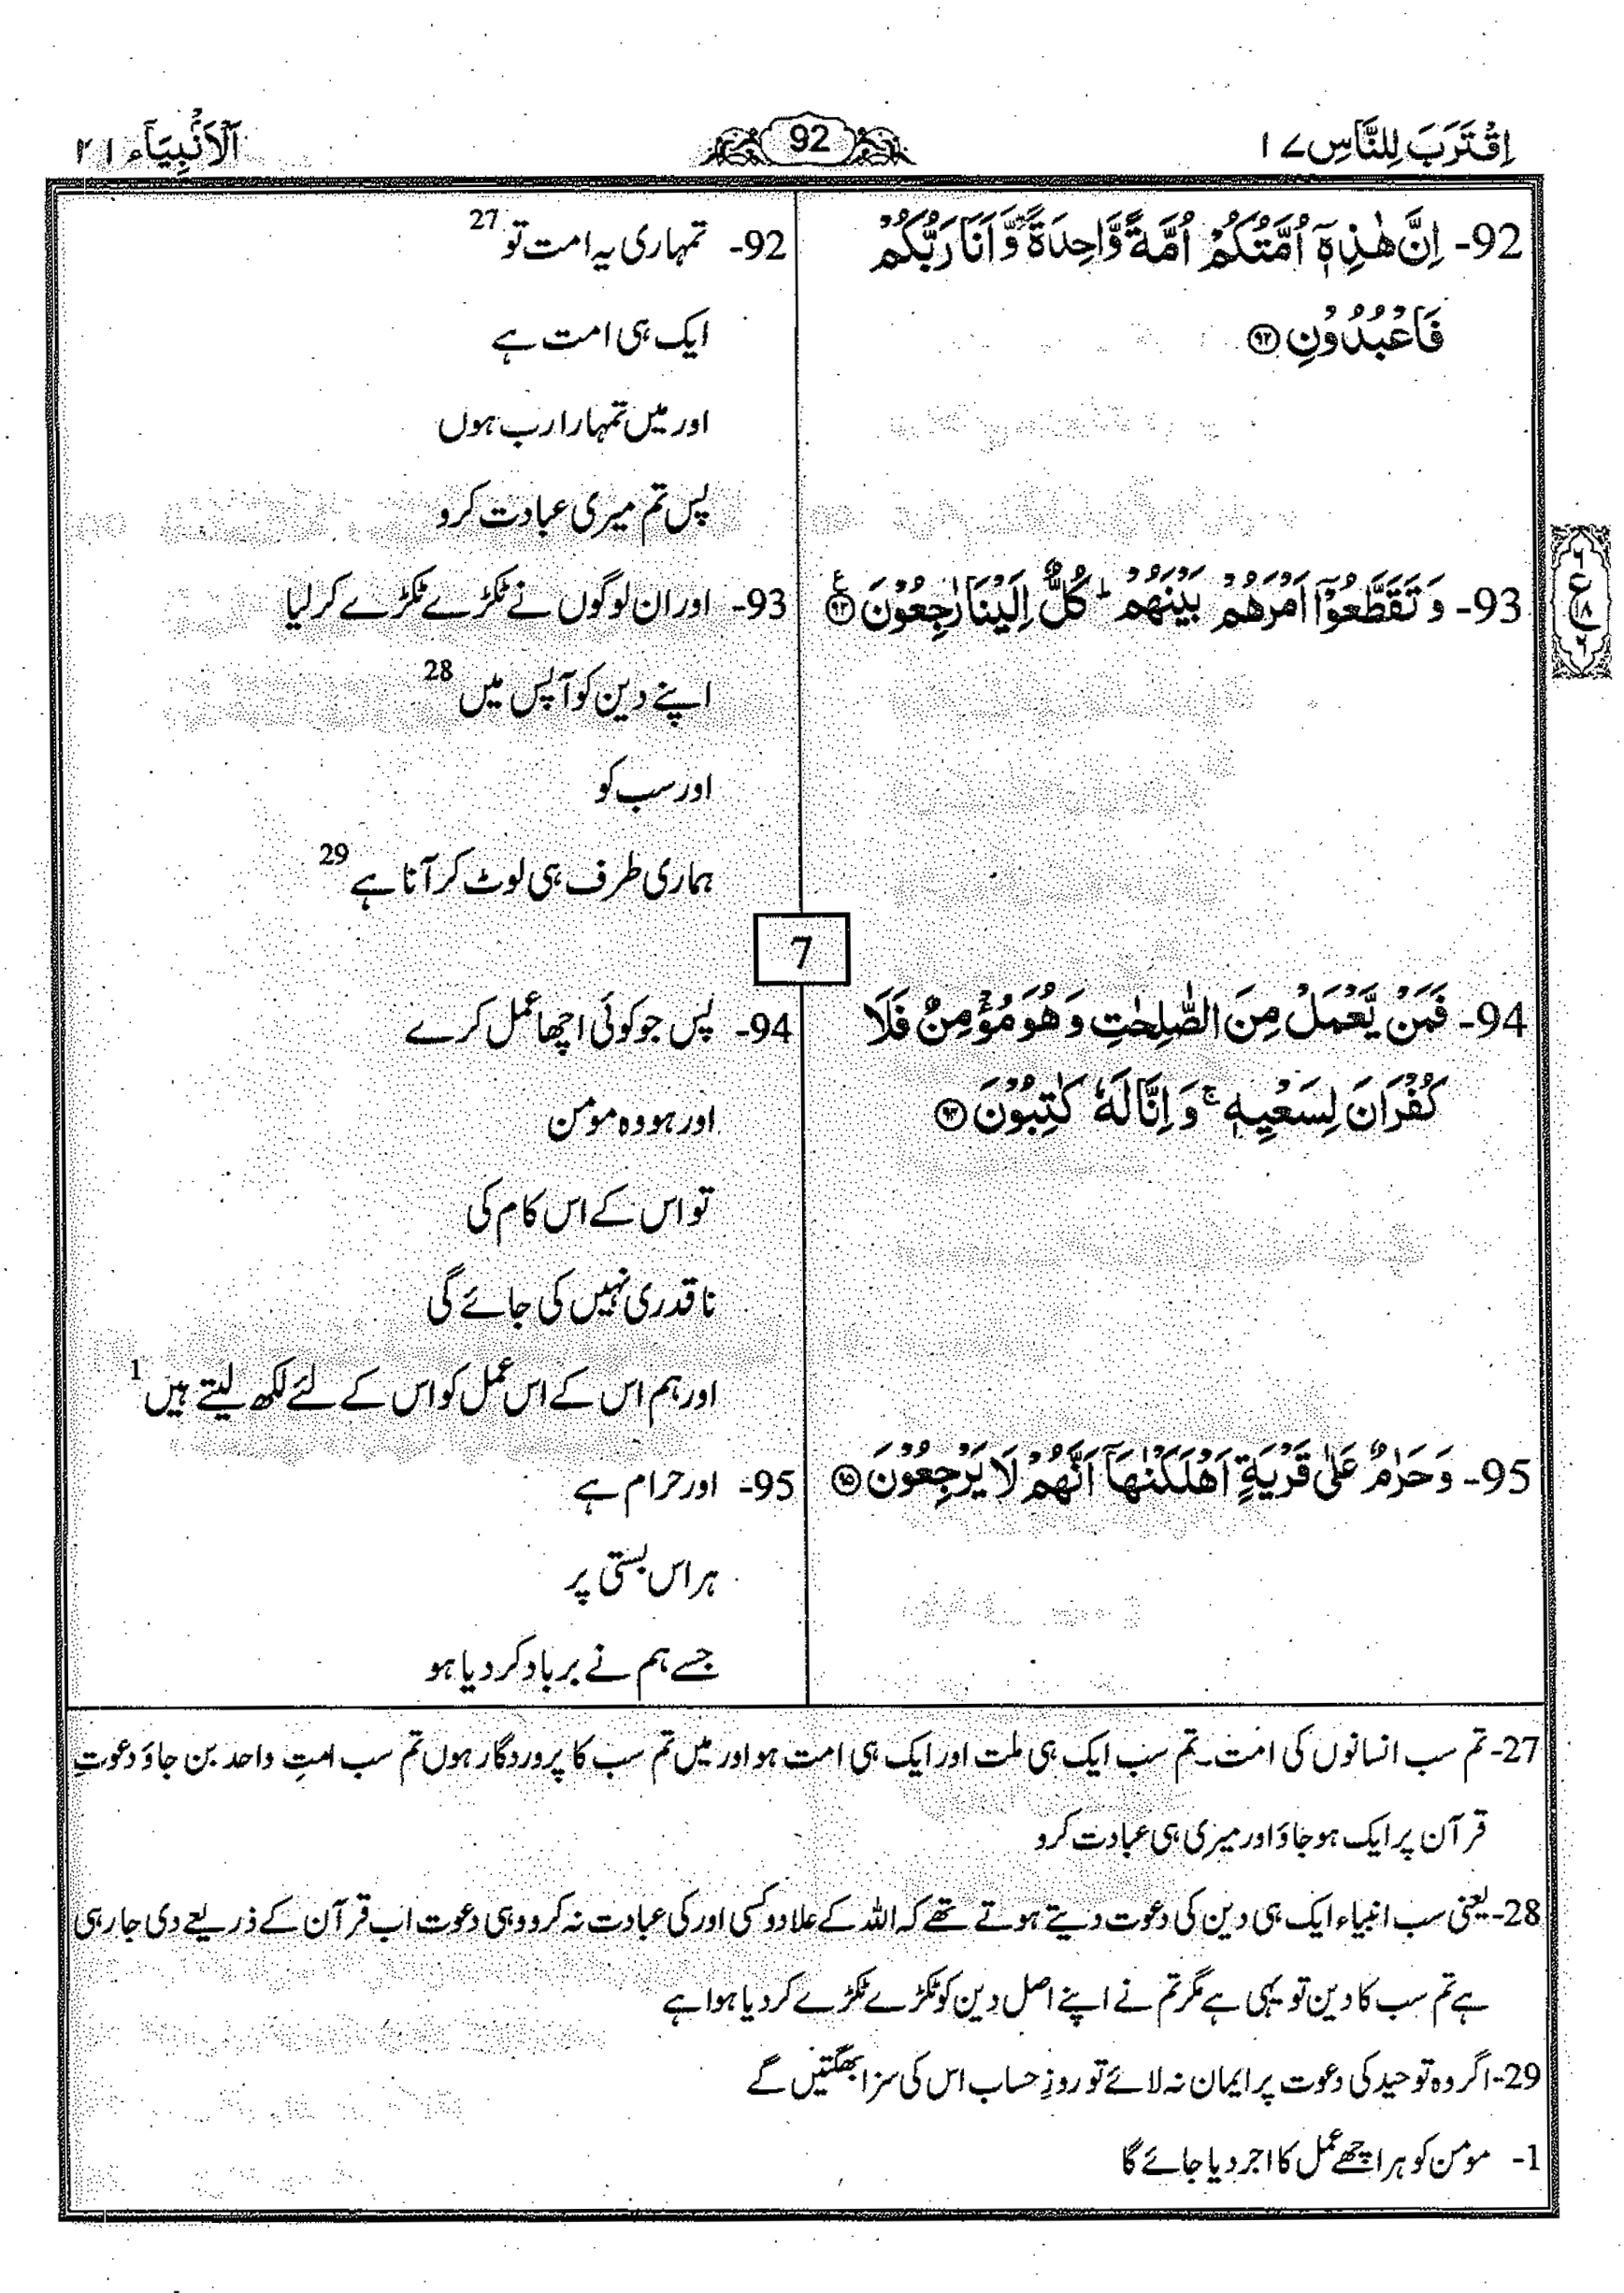 اِقْتَرَبَ لِلنَّاسِ ۱۷
92
اَلْاَنْۢبِیَآء ۲۱
92- اِنَّ هٰذِهٖۤ اُمَّتُكُمْ اُمَّةً وَّاحِدَةً ۖؗ وَّاَنَا رَبُّكُمْ
فَاعْبُدُوْنِ ﴿۹۲﴾
93- وَ تَقَطَّعُوْۤا اَمْرَهُمْ بَیْنَهُمْ ؕ كُلٌّ اِلَیْنَا رٰجِعُوْنَ ﴿۹۳﴾
٦
ع
۱۸
٦
92- تمہاری یہ امت تو 27
ایک ہی امت ہے
اور میں تمہارا رب ہوں
پس تم میری عبادت کرو
93- اور ان لوگوں نے ٹکڑے ٹکڑے کر لیا
اپنے دین کو آپس میں 28
اور سب کو
ہماری طرف ہی لوٹ کر آنا ہے 29
7
94- فَمَنْ یَّعْمَلْ مِنَ الصّٰلِحٰتِ وَ هُوَ مُؤْمِنٌ فَلَا
كُفْرَانَ لِسَعْیِهٖ ۚ وَ اِنَّا لَهٗ كٰتِبُوْنَ ﴿۹۴﴾
95- وَ حَرٰمٌ عَلٰی قَرْیَةٍ اَهْلَكْنٰهَاۤ اَنَّهُمْ لَا یَرْجِعُوْنَ ﴿۹۵﴾
94- پس جو کوئی اچھا عمل کرے
اور ہو وہ مؤمن
تو اس کے اس کام کی
نا قدری نہیں کی جائے گی
اور ہم اس کے اس عمل کو اس کے لئے لکھ لیتے ہیں 1
95- اور حرام ہے
ہر اس بستی پر
جسے ہم نے برباد کر دیا ہو
27- تم سب انسانوں کی امت۔ تم سب ایک ہی ملت اور ایک ہی امت ہو اور میں تم سب کا پروردگار ہوں تم سب امتِ واحد بن جاؤ دعوتِ
قرآن پر ایک ہو جاؤ اور میری ہی عبادت کرو
28- یعنی سب انبیاء ایک ہی دین کی دعوت دیتے ہوتے تھے کہ اللہ کے علاوہ کسی اور کی عبادت نہ کرو وہی دعوت اب قرآن کے ذریعے دی جا رہی
ہے تم سب کا دین تو یہی ہے مگر تم نے اپنے اصل دین کو ٹکڑے ٹکڑے کر دیا ہوا ہے
29- اگر وہ توحید کی دعوت پر ایمان نہ لائے تو روزِ حساب اس کی سزا بھگتیں گے
1- مؤمن کو ہر اچھے عمل کا اجر دیا جائے گا